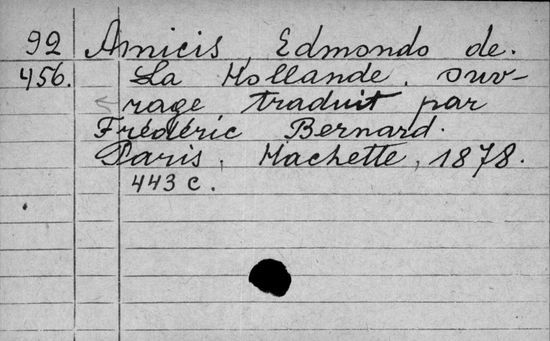 92 Amicis Edmondo de.
456. La Hollande, ouv-
rage traduit par
Frédéric Bernard.
Paris, Hachette, 1878.
443 c.